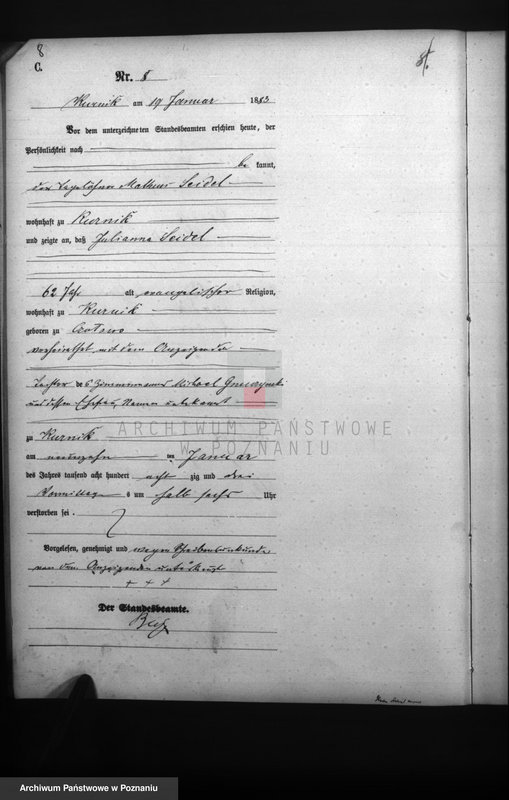 8
C.
8.
Nr. 8
Kurnik am 19 Januar 1883
Vor dem unterzeichneten Standesbeamten erschien heute, der
Persönlichkeit nach
be kannt,
der Tagelöhner Seidel
wohnhaft zu Kurnik
und zeigte an, daß Julianna Seidel
62 Jahr alt evangelischer Religion,
wohnhaft zu Kurnik
geboren zu
verheirathet mit dem Anzeigenden
Tochter des Zimmermanns
und dessen Ehefrau, Namen unbekannt
ARCHIWUM PAŃSTWOWE
W POZNANIU
zu Kurnik
am neunzehn ten Januar
des Jahres tausend acht hundert acht zig und drei
Vormittag s um halb sechs Uhr
verstorben sei.
Vorgelesen, genehmigt und wegen Schreibensunkunde
von dem Anzeigenden unterkreuzt
+ + +
Der Standesbeamte.
Archiwum Państwowe w Poznaniu